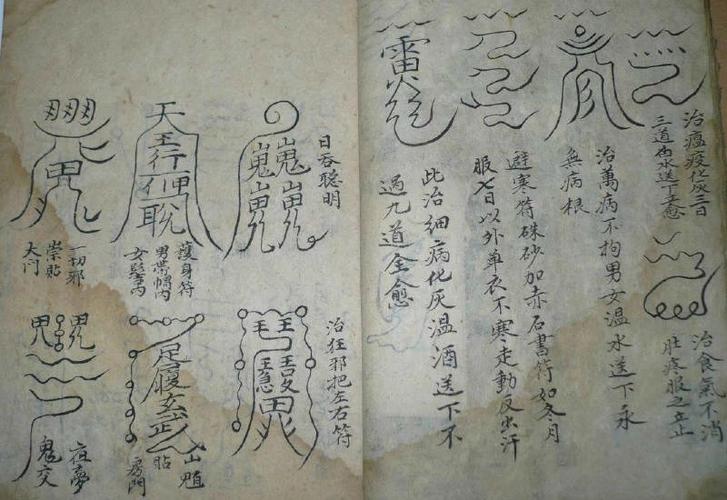 治瘟疫化灰三日
三道白水送下立愈
治食氣不消
肚疼服之立止
治萬病不拘男女溫水送下永
無病根
避寒符硃砂加赤石書符如冬月
服七日以外單衣不寒走動反出汗
此治細病化灰溫酒送下不
過九道全愈
雷火
日吞聰明
護身符
男帶帽內
女髻內
天
行
一切邪
祟貼
大门
治狂邪把左右符
足履玄武
山魈
貼
房門
夜夢
鬼交